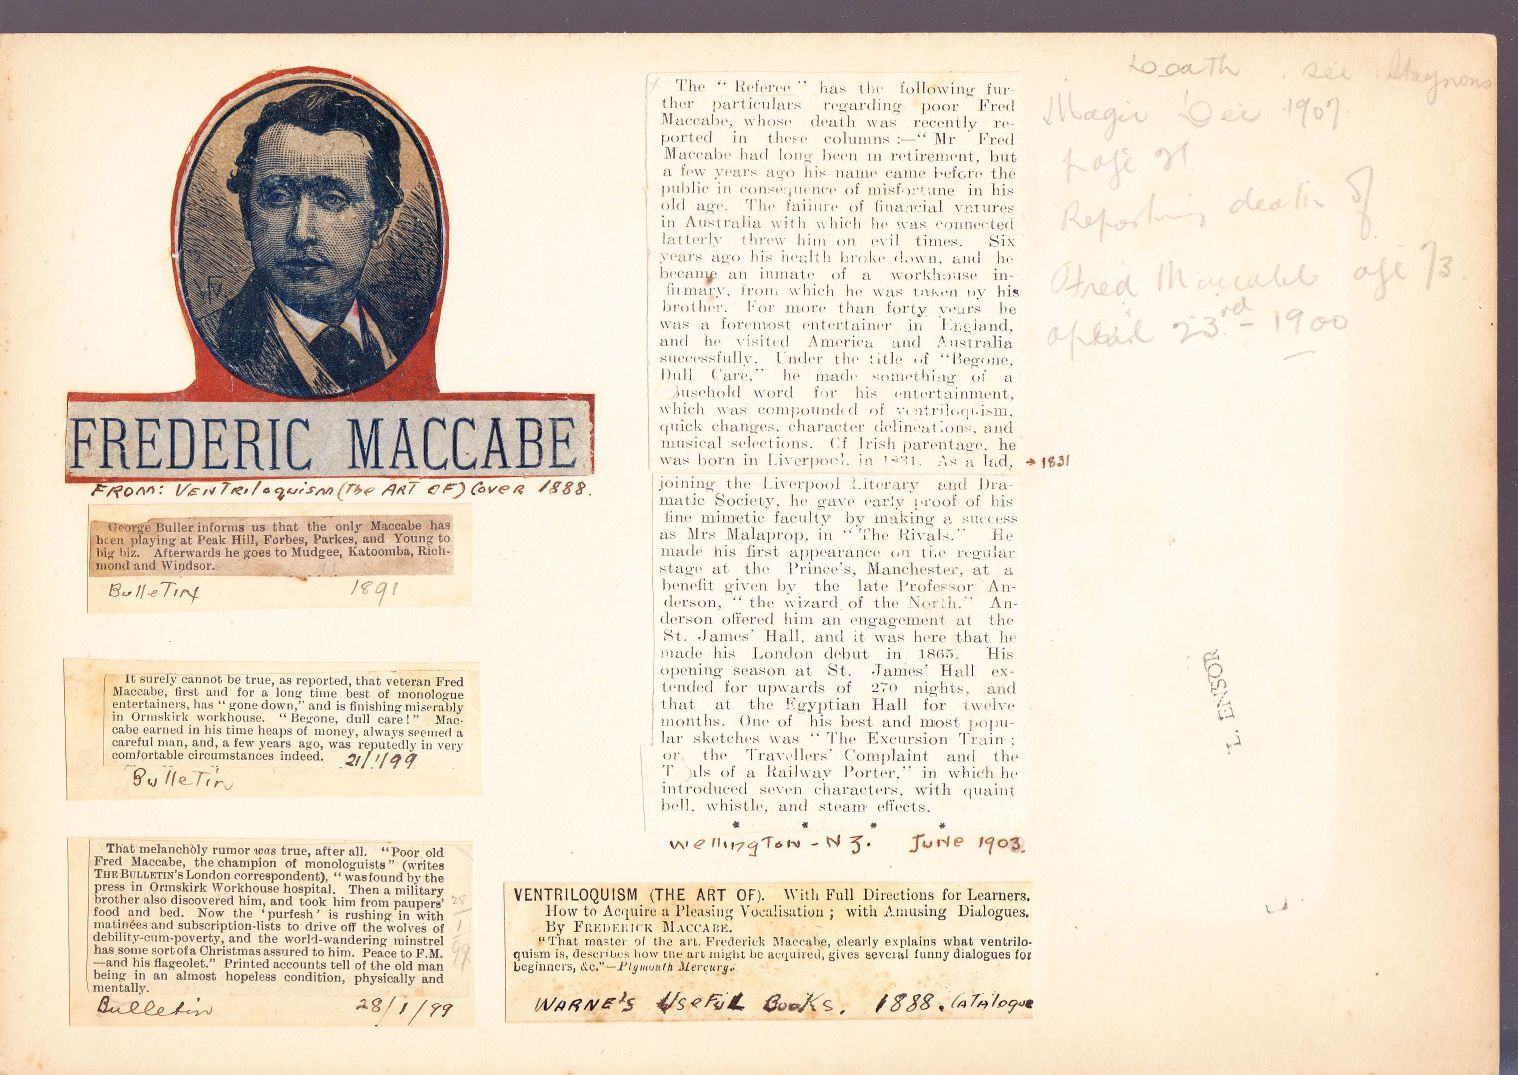 FREDERIC MACCABE
FROM: VENTRILOQUISM (The ART OF) Cover 1888.
George Buller informs us that the only Maccabe has
been playing at Peak Hill, Forbes, Parkes, and Young to
big biz. Afterwards he goes to Mudgee, Katoomba, Rich-
mond and Windsor.
BulleTin 1891
It surely cannot be true, as reported, that veteran Fred
Maccabe, first and for a long time best of monologue
entertainers, has "gone down," and is finishing miserably
in Ormskirk workhouse. "Begone, dull care!" Mac-
cabe earned in his time heaps of money, always seemed a
careful man, and, a few years ago, was reputedly in very
comfortable circumstances indeed. 21/1/99
BulleTin
That melancholy rumor was true, after all. "Poor old
Fred Maccabe, the champion of monologuists" (writes
THE BULLETIN'S London correspondent), "was found by the
press in Ormskirk Workhouse hospital. Then a military
brother also discovered him, and took him from paupers'
food and bed. Now the 'purfesh' is rushing in with
matinées and subscription-lists to drive off the wolves of
debility-cum-poverty, and the world-wandering minstrel
has some sort of a Christmas assured to him. Peace to F.M.
—and his flageolet." Printed accounts tell of the old man
being in an almost hopeless condition, physically and
mentally.
28
1
99
Bulletin 28/1/99
The "Referee" has the following fur-
ther particulars regarding poor Fred
Maccabe, whose death was recently re-
ported in these columns:—"Mr Fred
Maccabe had long been in retirement, but
a few years ago his name came before the
public in consequence of misfortune in his
old age. The failure of financial ventures
in Australia with which he was connected
latterly threw him on evil times. Six
years ago his health broke down, and he
became an inmate of a workhouse in-
firmary, from which he was taken by his
brother. For more than forty years he
was a foremost entertainer in England,
and he visited America and Australia
successfully. Under the title of "Begone,
Dull Care," he made something of a
ousehold word for his entertainment,
which was compounded of ventriloquism,
quick changes, character delineations, and
musical selections. Of Irish parentage, he
was born in Liverpool, in 1831. As a lad, → 1831
joining the Liverpool Literary and Dra-
matic Society, he gave early proof of his
fine mimetic faculty by making a success
as Mrs Malaprop, in "The Rivals." He
made his first appearance on the regular
stage at the Prince's, Manchester, at a
benefit given by the late Professor An-
derson, "the wizard of the North." An-
derson offered him an engagement at the
St. James' Hall, and it was here that he
made his London debut in 1865. His
opening season at St. James' Hall ex-
tended for upwards of 270 nights, and
that at the Egyptian Hall for twelve
months. One of his best and most popu-
lar sketches was "The Excursion Train;
or, the Travellers' Complaint and the
T als of a Railway Porter," in which he
introduced seven characters, with quaint
bell, whistle, and steam effects.
* * * *
Wellington - N Z. June 1903
VENTRILOQUISM (THE ART OF). With Full Directions for Learners.
How to Acquire a Pleasing Vocalisation; with Amusing Dialogues.
By FREDERICK MACCABE.
"That master of the art, Frederick Maccabe, clearly explains what ventrilo-
quism is, describes how the art might be acquired, gives several funny dialogues for
beginners, &c."—Plymouth Mercury.
WARNE'S UseFul Books. 1888. CATAlogue
see
Magic Dec 1907
page 21
Reporting death of
Fred Maccabe age 73.
23rd - 1900
T. ENSOR